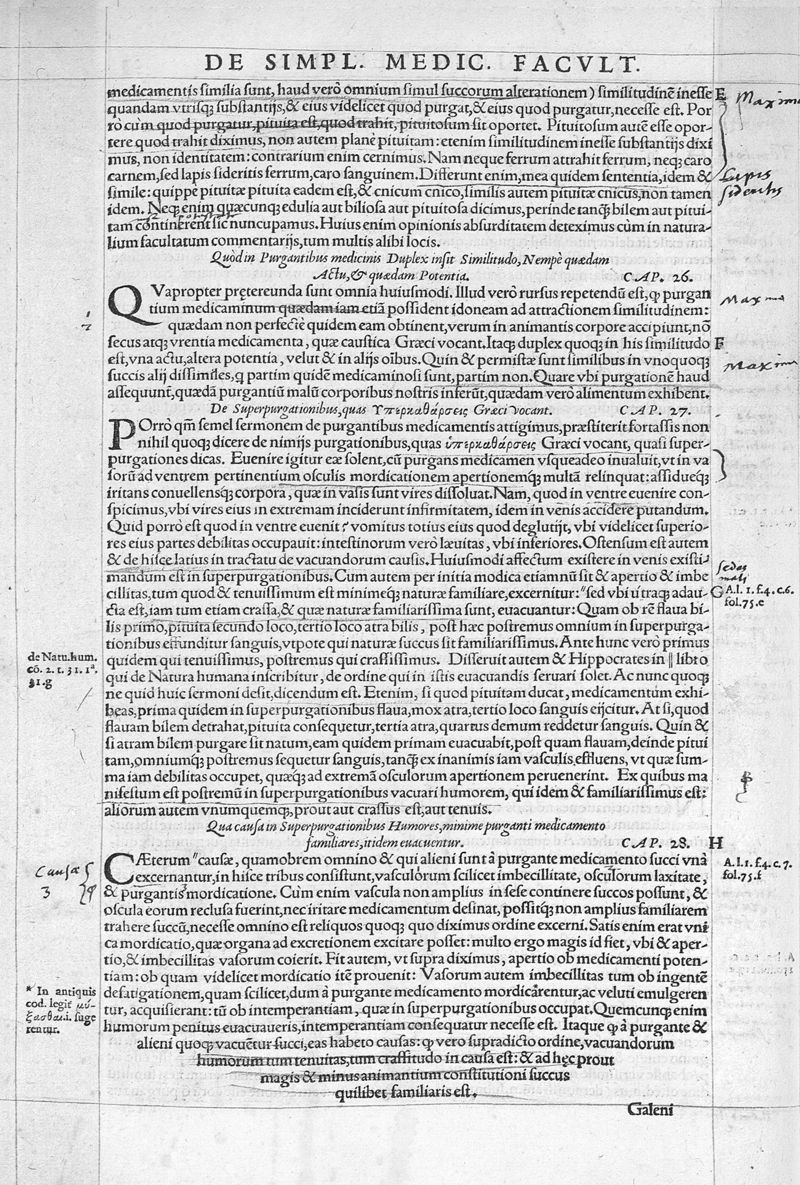 DE SIMPL. MEDIC. FACVLT.
medicamentis similia sunt, haud verò omnium simul succorum alterationem) similitudinẽ inesse E
quandam vtrisq; substantijs, & eius videlicet quod purgat, & eius quod purgatur, necesse est. Por
rò cùm quod purgatur, pituita est, quod trahit, pituitosum sit oportet. Pituitosum autẽ esse opor-
tere quod trahit diximus, non autem planè pituitam: etenim similitudinem inesse substantijs dixi
mus, non identitatem: contrarium enim cernimus. Nam neque ferrum attrahit ferrum, neq; caro
carnem, sed lapis sideritis ferrum, caro sanguinem. Differunt enim, mea quidem sententia, idem &
simile: quippe pituitæ pituita eadem est, & cnicum cnico, similis autem pituitæ cnicus, non tamen
idem. Neq; enim quæcunq; edulia aut biliosa aut pituitosa dicimus, perinde tanq̃ bilem aut pitui-
tam continerent sic nuncupamus. Huius enim opinionis absurditatem deteximus cùm in natura-
lium facultatum commentarijs, tum multis alibi locis.
Maximus
Lapis
sideritis
Quòd in Purgantibus medicinis Duplex insit Similitudo, Nempè quædam
Actu, & quædam Potentia. CAP. 26.
QVapropter prętereunda sunt omnia huiusmodi. Illud verò rursus repetendũ est, ꝙ purgan
tium medicaminum quædam iam etiã possident idoneam ad attractionem similitudinem:
quædam non perfectè quidem eam obtinent, verùm in animantis corpore accipiunt, nõ
secus atq; vrentia medicamenta, quæ caustica Græci vocant. Itaq; duplex quoq; in his similitudo F
est, vna actu, altera potentia, velut & in alijs oĩbus. Quin & permistæ sunt similibus in vnoquoq;
succis alij dissimiles, ꝙ partim quidẽ medicaminosi sunt, partim non. Quare vbi purgationẽ haud
assequunt, quædã purgantiũ malũ corporibus nostris inferũt, quædam verò alimentum exhibent.
De Superpurgationibus, quas Ὑπερκαθάρσεις Græci vocant. CAP. 27.
POrrò qm̃ semel sermonem de purgantibus medicamentis attigimus, præstiterit fortassis non
nihil quoq; dicere de nimijs purgationibus, quas ὑπερκαθάρσεις Græci vocant, quasi super-
purgationes dicas. Euenire igitur eæ solent, cũ purgans medicamen vsqueadeo inualuit, vt in va
sorũ ad ventrem pertinentium osculis mordicationem apertionemq; multã relinquat: assidueq;
iritans conuellensq; corpora, quæ in vasis sunt vires dissoluat. Nam, quod in ventre euenire con-
spicimus, vbi vires eius in extremam inciderunt infirmitatem, idem in venis accidere putandum.
Quid porrò est quod in ventre euenit? vomitus totius eius quod deglutijt, vbi videlicet superio-
res eius partes debilitas occupauit: intestinorum verò læuitas, vbi inferiores. Ostensum est autem
& de hisce latius in tractatu de vacuandorum causis. Huiusmodi affectum existere in venis existi-
mandum est in superpurgationibus. Cum autem per initia modica etiamnũ sit & apertio & imbe
cillitas, tum quod & tenuissimum est minimeq; naturæ familiare, excernitur: "sed vbi vtraq; adau- G
cta est, iam tum etiam crassa, & quæ naturæ familiarissima sunt, euacuantur: Quam ob rẽ flaua bi-
lis primo, pituita secundo loco, tertio loco atra bilis, post hæc postremus omnium in superpurga-
tionibus effunditur sanguis, vtpote qui naturæ succus sit familiarissimus. Ante hunc verò primus
quidem qui tenuissimus, postremus qui crassissimus. Disseruit autem & Hippocrates in ‖ libro
qui de Natura humana inscribitur, de ordine qui in istis euacuandis seruari solet. Ac nunc quoq;
ne quid huic sermoni desit, dicendum est. Etenim, si quod pituitam ducat, medicamentum exhi-
beas, prima quidem in superpurgationibus flaua, mox atra, tertio loco sanguis eijcitur. At si, quod
flauam bilem detrahat, pituita consequetur, tertia atra, quartus demum reddetur sanguis. Quin &
si atram bilem purgare sit natum, eam quidem primam euacuabit, post quam flauam, deinde pitui
tam, omniumq; postremus sequetur sanguis, tanq̃ ex inanimis iam vasculis, effluens, vt quæ sum-
ma iam debilitas occupet, quæq; ad extremã osculorum apertionem peruenerint. Ex quibus ma
nifestum est postremũ in superpurgationibus vacuari humorem, qui idem & familiarissimus est:
aliorum autem vnumquemq; prout aut crassus est, aut tenuis.
A.l. 1. f. 4. c. 6.
fol. 75. e
de Natu. hum.
cõ. 2. t. 31. 1ª.
31. g
Qua causa in Superpurgationibus Humores, minime purganti medicamento
familiares, itidem euacuentur. CAP. 28. H
CÆterum "causæ, quamobrem omnino & qui alieni sunt à purgante medicamento succi vnà
excernantur, in hisce tribus consistunt, vasculorum scilicet imbecillitate, osculorum laxitate,
& purgantis mordicatione. Cùm enim vascula non amplius in sese continere succos possunt, &
oscula eorum reclusa fuerint, nec iritare medicamentum desinat, possitq; non amplius familiarem
trahere succũ, necesse omnino est reliquos quoq; quo diximus ordine excerni. Satis enim erat vni
ca mordicatio, quæ organa ad excretionem excitare posset: multo ergo magis id fiet, vbi & aper-
tio, & imbecillitas vasorum coierit. Fit autem, vt supra diximus, apertio ob medicamenti poten-
tiam: ob quam videlicet mordicatio itẽ prouenit: Vasorum autem imbecillitas tum ob ingentẽ
defatigationem, quam scilicet, dum à purgante medicamento mordicârentur, ac veluti emulgeren
tur, acquisierant: tũ ob intemperantiam, quæ in superpurgationibus occupat. Quemcunq; enim
humorum penitus euacuaueris, intemperantiam consequatur necesse est. Itaque ꝙ à purgante &
alieni quoq; vacuẽtur succi, eas habeto causas: ꝙ vero supradicto ordine, vacuandorum
humorum tum tenuitas, tum crassitudo in causa est: & ad hęc prout
magis & minus animantium constitutioni succus
quilibet familiaris est.
Causæ
3
A.l. 1. f. 4. c. 7.
fol. 75. f
* In antiquis
cod. legit̃ μύ-
ξασθαι. i. suge
rentur.
Galeni